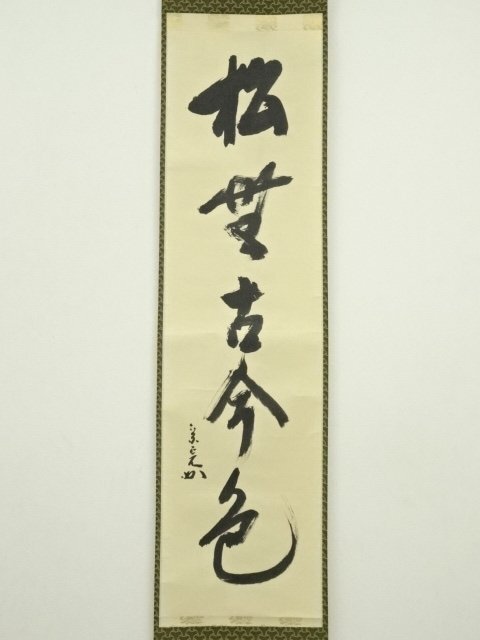 松無古今色